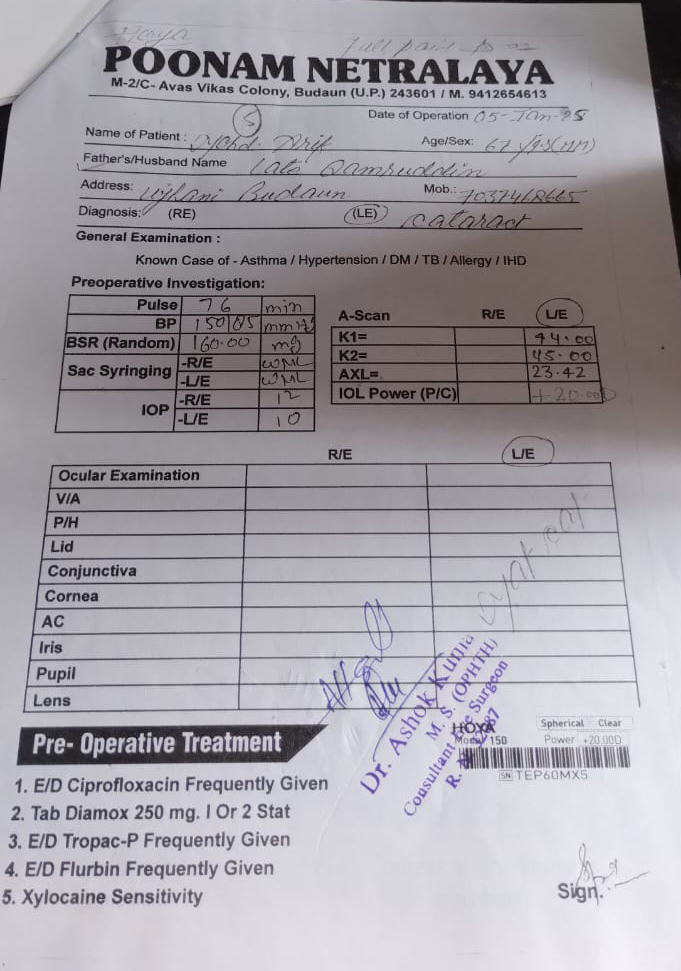 Hoya
Full paid
POONAM NETRALAYA
M-2/C- Avas Vikas Colony, Budaun (U.P.) 243601 / M. 9412654613
5
Date of Operation 05-Jan-25
Name of Patient : Mohd. Arif Age/Sex: 67 Yrs(M)
Father's/Husband Name Late Qamruddin
Address: Ujhani Budaun Mob.:
Diagnosis: (RE) (LE) Cataract
General Examination :
Known Case of - Asthma / Hypertension / DM / TB / Allergy / IHD
Preoperative Investigation:
Pulse 76 min
BP 150/85 mmHg
BSR (Random) 160.00 mg
Sac Syringing -R/E WNL
-L/E WNL
IOP -R/E 12
-L/E 10
A-Scan R/E L/E
K1= 44.00
K2= 45.00
AXL= 23.42
IOL Power (P/C) +20.00D
R/E L/E
Ocular Examination
V/A
P/H
Lid
Conjunctiva
Cornea
AC
Iris
Pupil
Lens
Dr. Ashok Kumar
M. S. (OPHTH)
Consultant Eye Surgeon
HOYA Spherical Clear
Model 150 Power +20.00D
SN TEP60MX5
Pre- Operative Treatment
1. E/D Ciprofloxacin Frequently Given
2. Tab Diamox 250 mg. I Or 2 Stat
3. E/D Tropac-P Frequently Given
4. E/D Flurbin Frequently Given
5. Xylocaine Sensitivity
Sign.